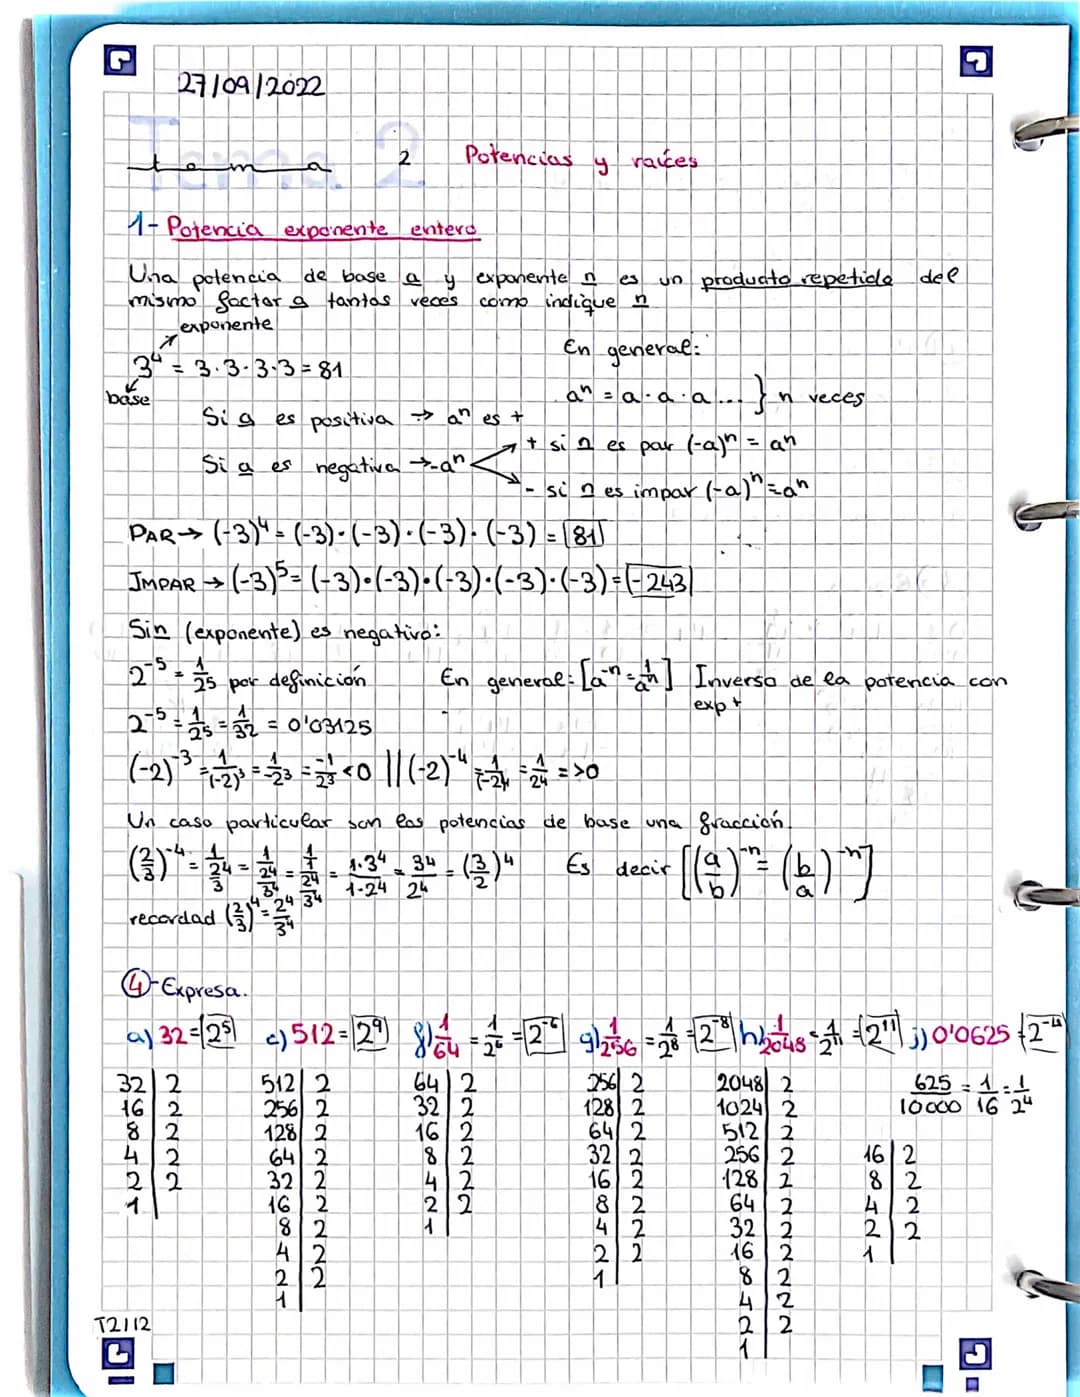 27/09/2022
Tema 2
tema 2 Potencias y raíces
1- Potencia exponente entero
Una potencia de base a y exponente n es un producto repetido del
mismo factor a tantas veces como indique n
exponente
3⁴ = 3·3·3·3 = 81
base
En general:
aⁿ = a·a·a... } n veces
Si a es positiva → aⁿ es +
Si a es negativa → -aⁿ
+ si n es par (-a)ⁿ = aⁿ
- si n es impar (-a)ⁿ = aⁿ
PAR → (-3)⁴ = (-3)·(-3)·(-3)·(-3) = 81
IMPAR → (-3)⁵ = (-3)·(-3)·(-3)·(-3)·(-3) = -243
Si n (exponente) es negativo:
2⁻⁵ = 1/2⁵ por definición En general: [a⁻ⁿ = 1/aⁿ] Inversa de la potencia con
exp +
2⁻⁵ = 1/2⁵ = 1/32 = 0'03125
(-2)⁻³ = 1/(-2)³ = 1/-2³ = -1/2³ < 0 || (-2)⁻⁴ = 1/(-2)⁴ = 1/2⁴ = > 0
Un caso particular son las potencias de base una fracción.
(2/3)⁻⁴ = 1/(2/3)⁴ = 1/(2⁴/3⁴) = (1/1)/(2⁴/3⁴) = 1·3⁴/1·2⁴ = 3⁴/2⁴ = (3/2)⁴ Es decir [(a/b)⁻ⁿ = (b/a)⁻ⁿ]
recordad (2/3)⁴ = 2⁴/3⁴
4 - Expresa.
a) 32 = 2⁵ c) 512 = 2⁹ f) 1/64 = 1/2⁶ = 2⁻⁶ g) 1/256 = 1/2⁸ = 2⁻⁸ h) 1/2048 = 1/2¹¹ = 2¹¹ j) 0'0625 = 2⁻⁴
32 | 2
16 | 2
8 | 2
4 | 2
2 | 2
1 |
512 | 2
256 | 2
128 | 2
64 | 2
32 | 2
16 | 2
8 | 2
4 | 2
2 | 2
1 |
64 | 2
32 | 2
16 | 2
8 | 2
4 | 2
2 | 2
1 |
256 | 2
128 | 2
64 | 2
32 | 2
16 | 2
8 | 2
4 | 2
2 | 2
1 |
2048 | 2
1024 | 2
512 | 2
256 | 2
128 | 2
64 | 2
32 | 2
16 | 2
8 | 2
4 | 2
2 | 2
1 |
625/10000 = 1/16 = 1/2⁴
16 | 2
8 | 2
4 | 2
2 | 2
1 |
T2112